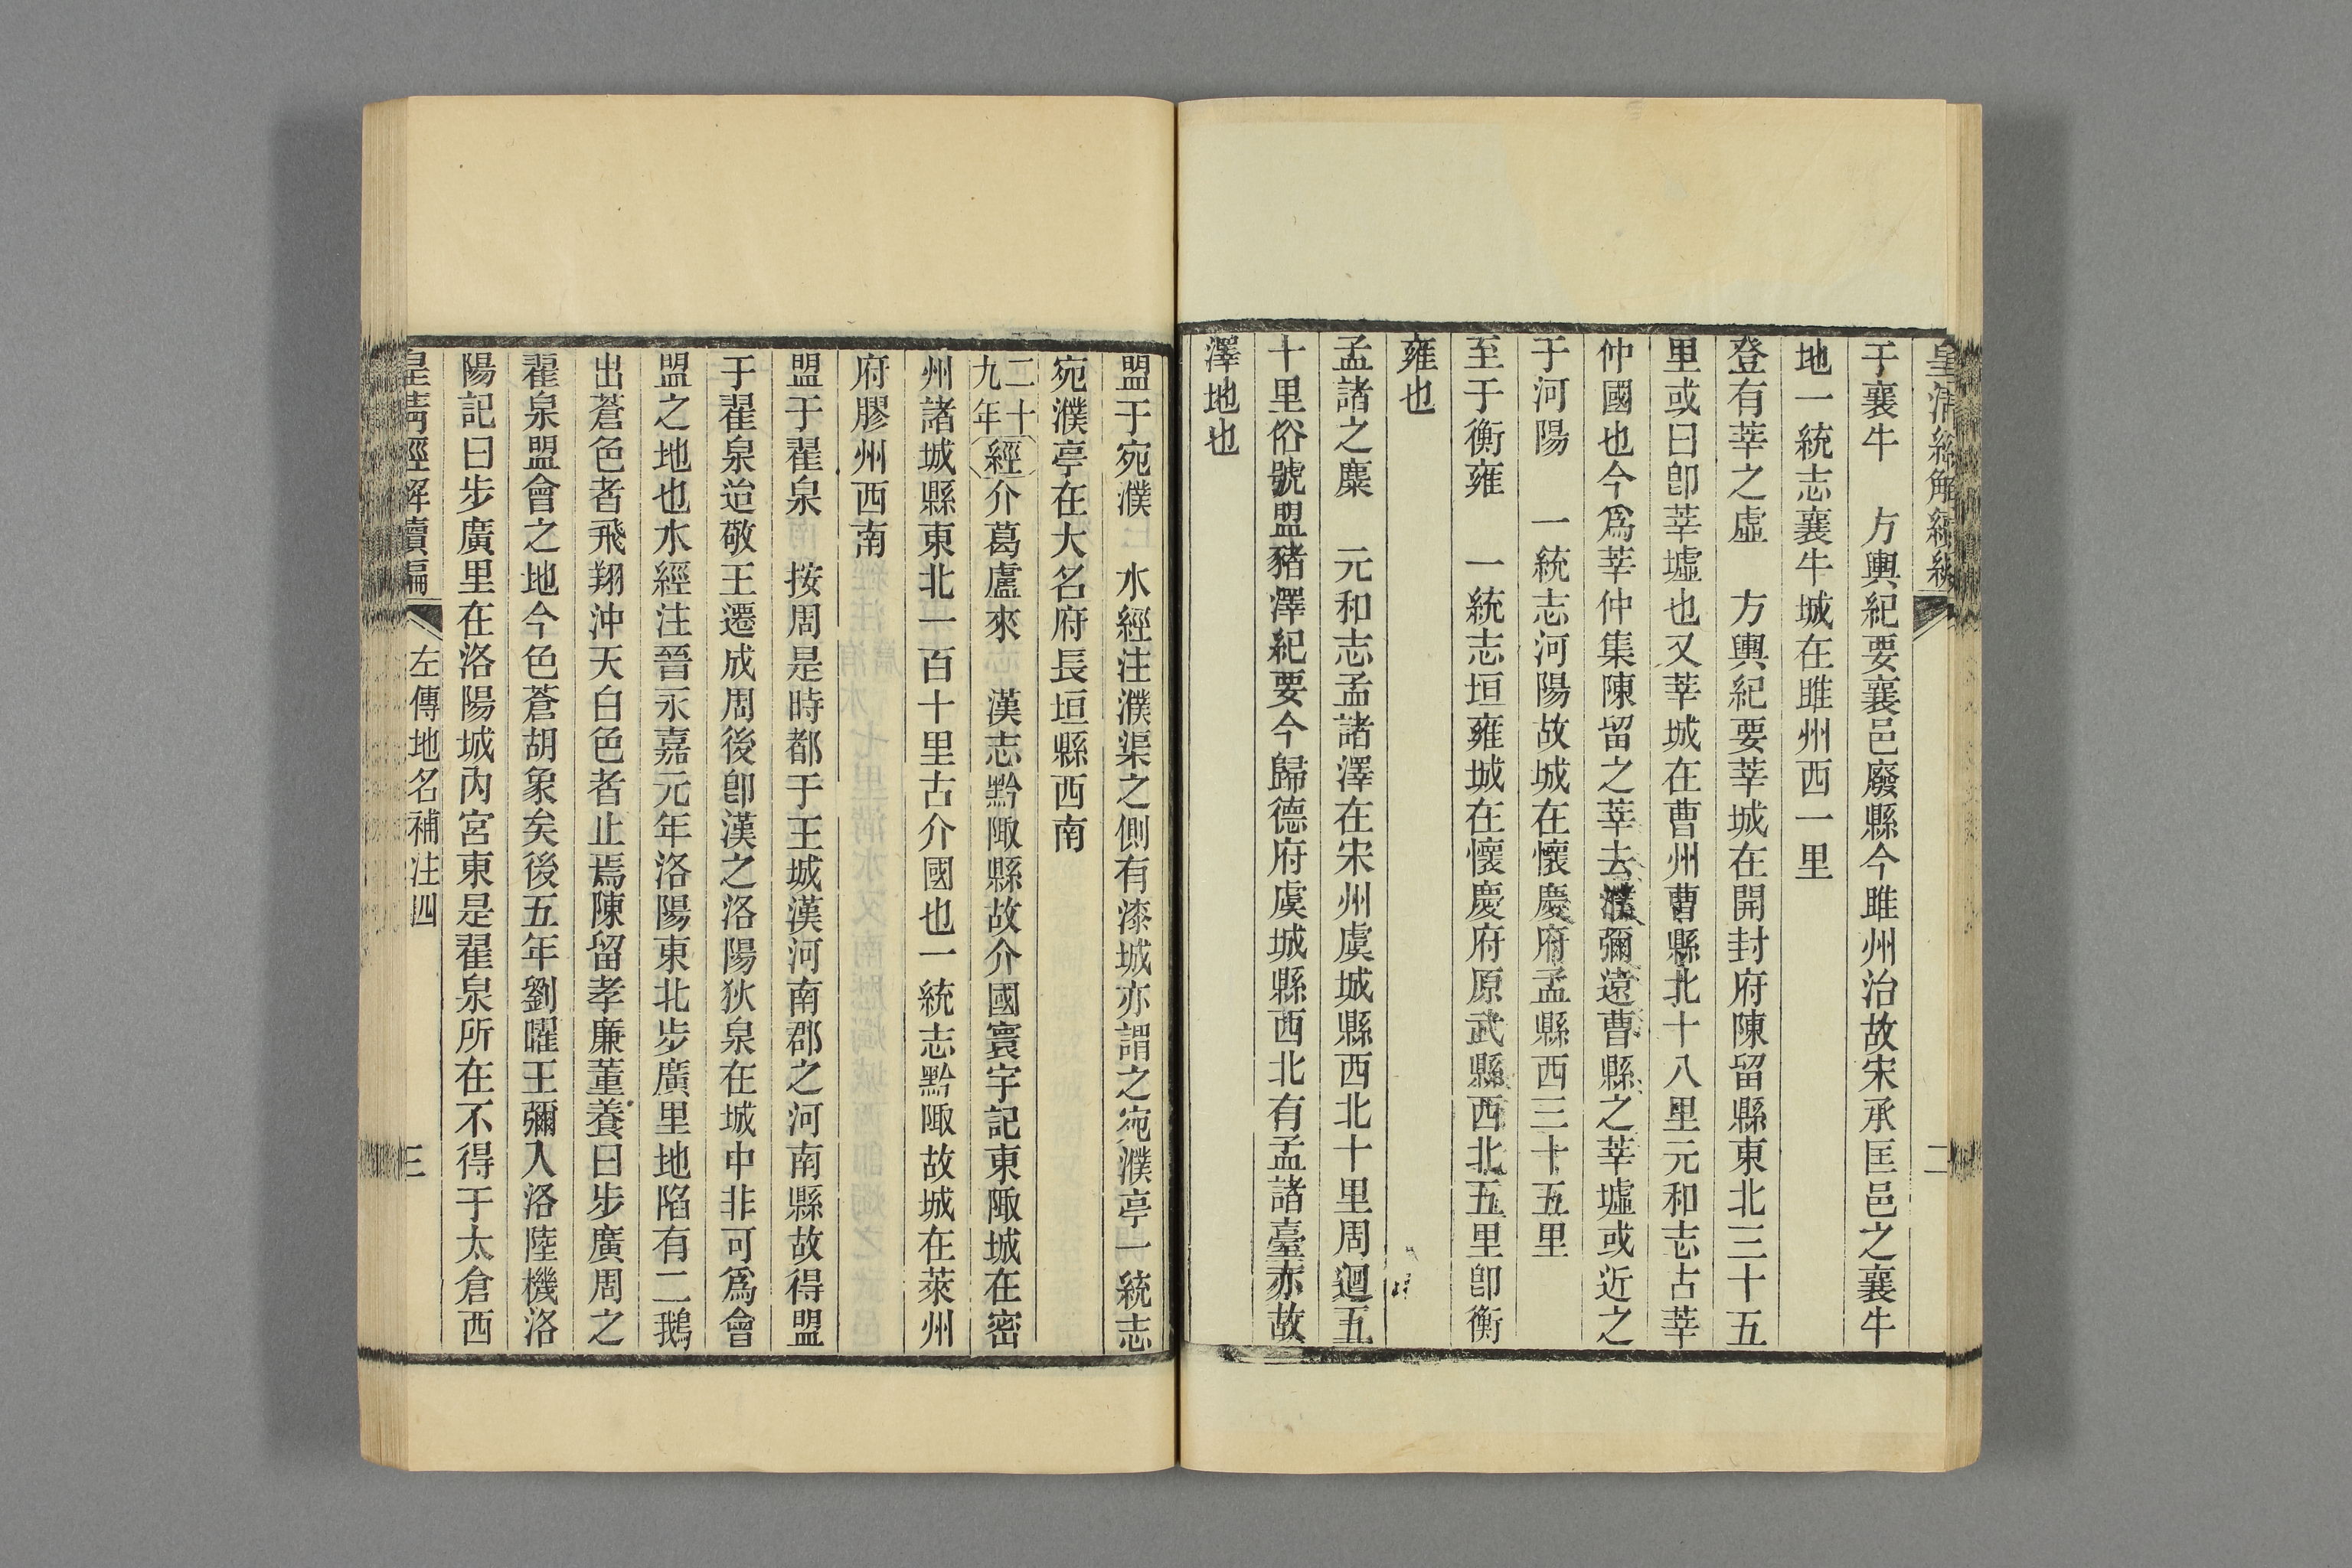 皇清經解續編
二
于襄牛　方輿紀要襄邑廢縣今雎州治故宋承匡邑之襄牛
地一統志襄牛城在雎州西一里
登有莘之虛　方輿紀要莘城在開封府陳留縣東北三十五
里或曰卽莘墟也又莘城在曹州曹縣北十八里元和志古莘
仲國也今爲莘仲集陳留之莘去濮彌遠曹縣之莘墟或近之
于河陽　一統志河陽故城在懷慶府孟縣西三十五里
至于衡雍　一統志垣雍城在懷慶府原武縣西北五里卽衡
雍也
孟諸之麋　元和志孟諸澤在宋州虞城縣西北十里周迴五
十里俗號盟豬澤紀要今歸德府虞城縣西北有孟諸臺亦故
澤地也
盟于宛濮　水經注濮渠之側有漆城亦謂之宛濮亭一統志
宛濮亭在大名府長垣縣西南
二十九年經介葛盧來　漢志黔陬縣故介國寰宇記東陬城在密
州諸城縣東北一百十里古介國也一統志黔陬故城在萊州
府膠州西南
盟于翟泉　按周是時都于王城漢河南郡之河南縣故得盟
于翟泉迨敬王遷成周後卽漢之洛陽狄泉在城中非可爲會
盟之地也水經注晉永嘉元年洛陽東北步廣里地陷有二鵝
出蒼色者飛翔沖天白色者止焉陳留孝廉董養曰步廣周之
翟泉盟會之地今色蒼胡象矣後五年劉曜王彌入洛陸機洛
陽記曰步廣里在洛陽城內宮東是翟泉所在不得于太倉西
皇清經解續編
左傳地名補注四
三